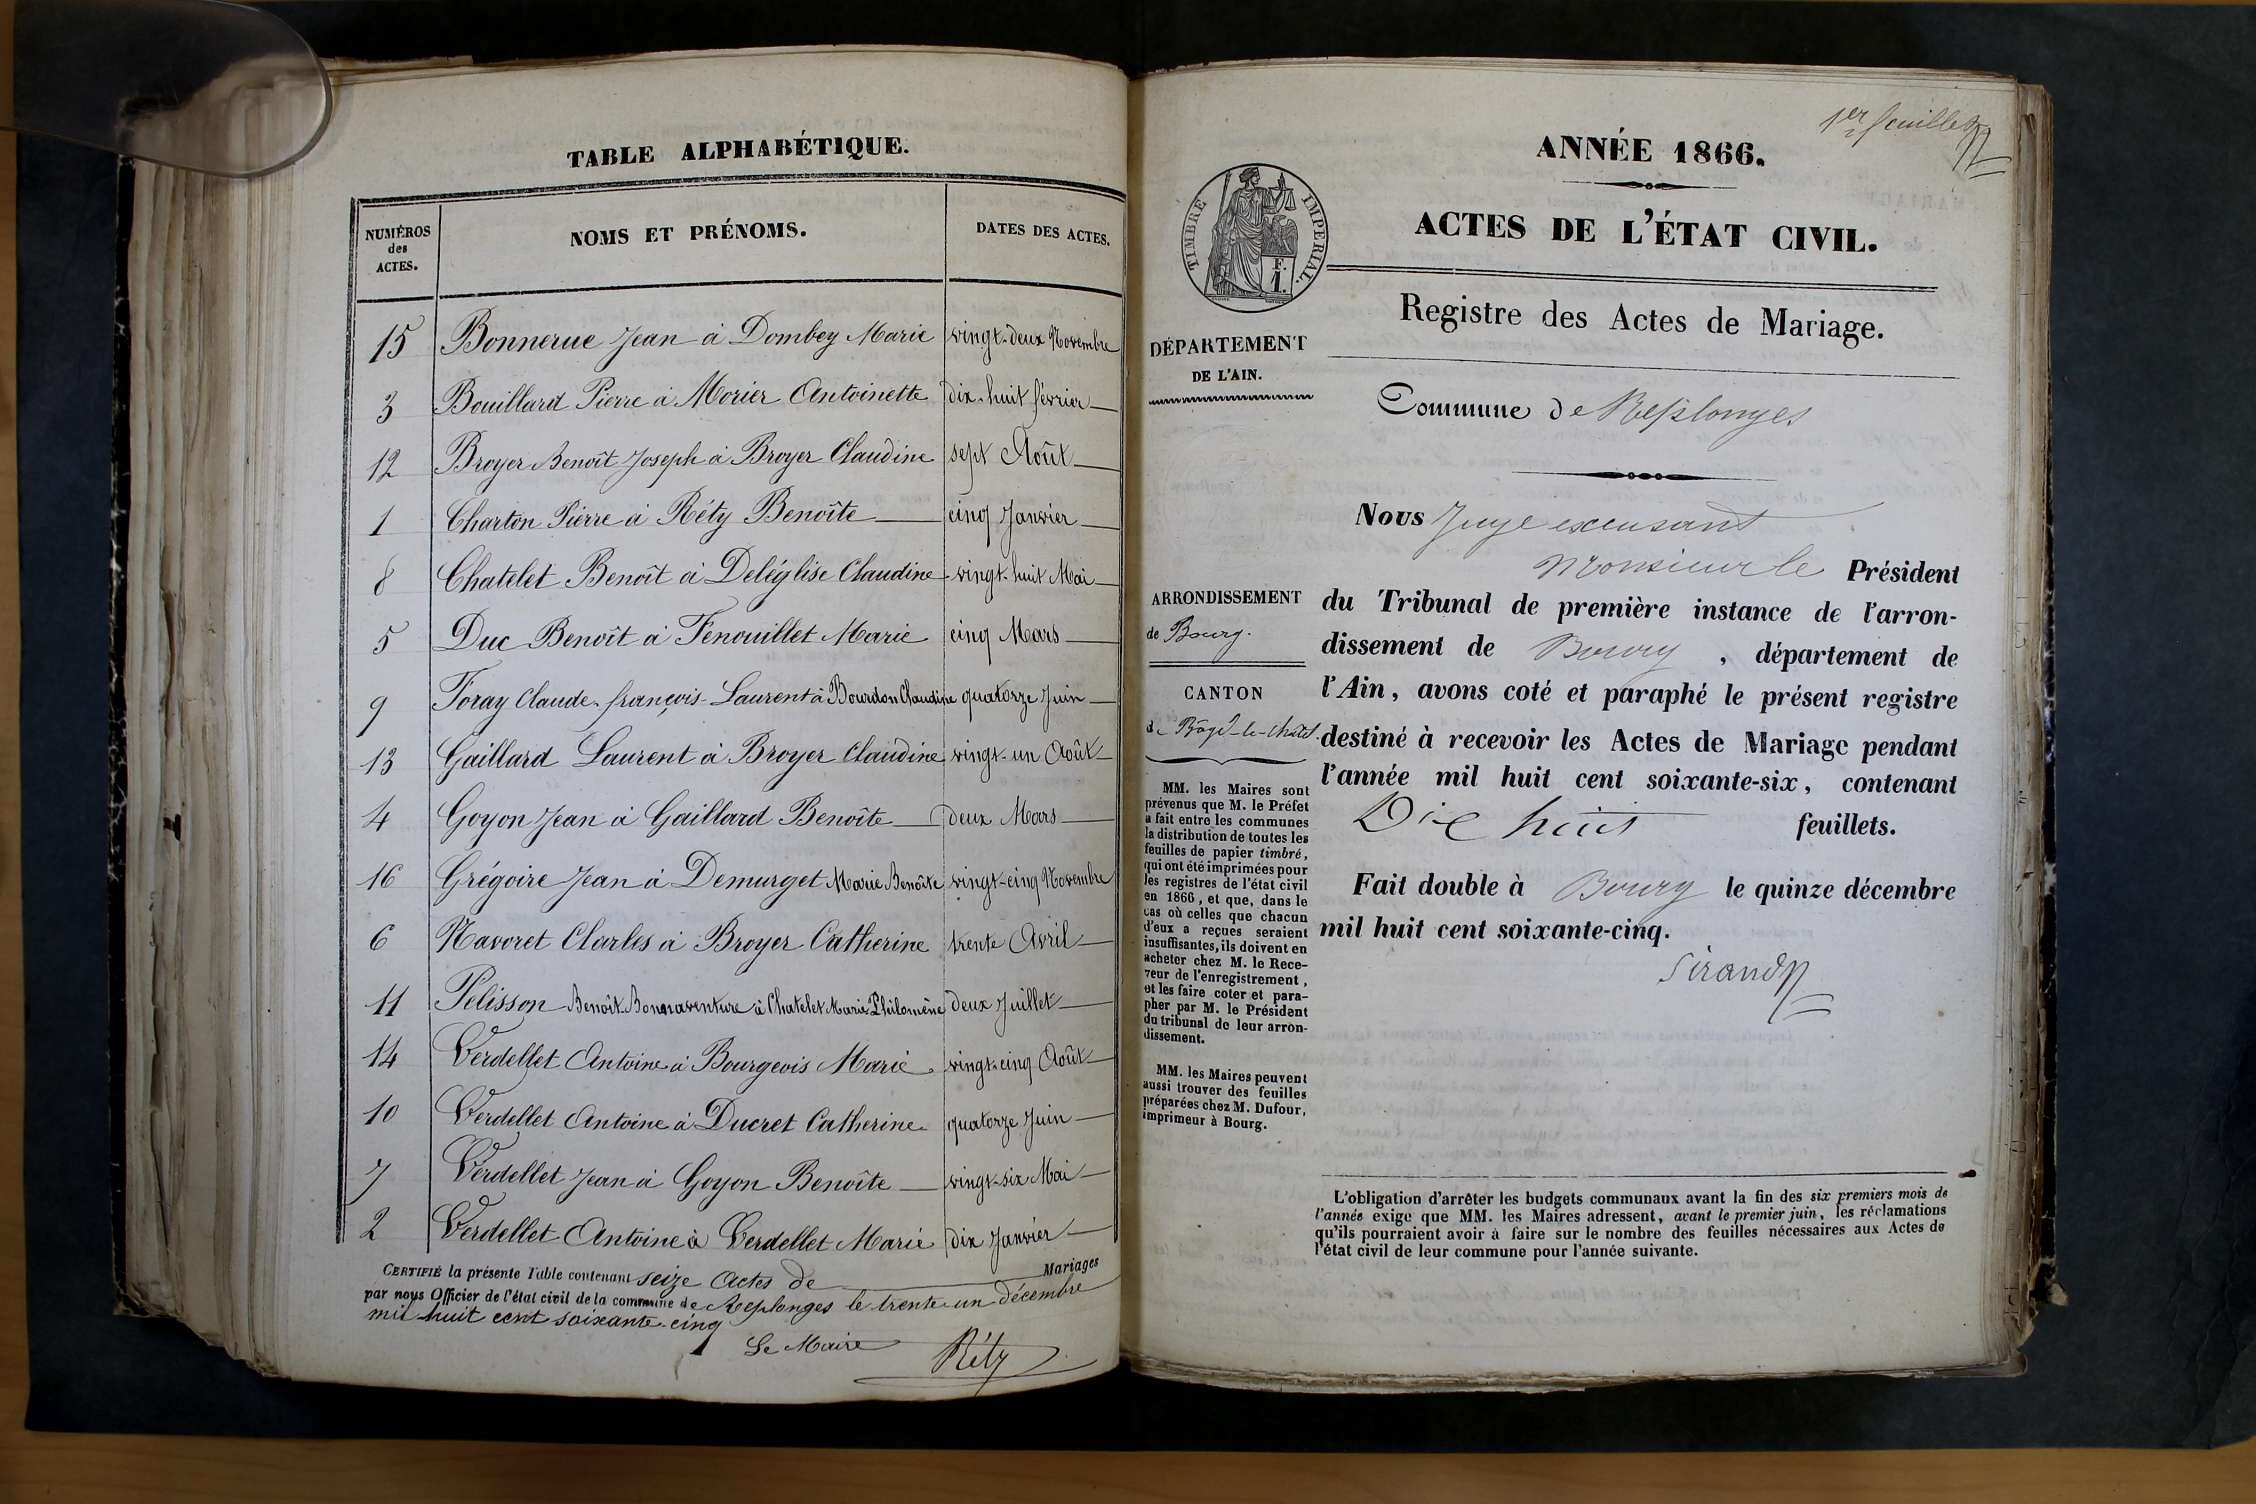 TABLE ALPHABÉTIQUE.
NUMÉROS des ACTES. NOMS ET PRÉNOMS. DATES DES ACTES.
15 Bonnerue Jean à Dombey Marie vingt-deux Novembre
3 Bouillard Pierre à Morier Antoinette dix-huit février
12 Broyer Benoît Joseph à Broyer Claudine sept Août
1 Charton Pierre à Réty Benoîte cinq Janvier
8 Chatelet Benoît à Deléglise Claudine vingt-huit Mai
5 Duc Benoît à Fenouillet Marie cinq Mars
9 Foray Claude-françois-Laurent à Bourdon Claudine quatorze Juin
13 Gaillard Laurent à Broyer Claudine vingt-un Août
4 Goyon Jean à Gaillard Benoîte deux Mars
16 Grégoire Jean à Demurget Marie Benoîte vingt-cinq Novembre
6 Navoret Charles à Broyer Catherine trente Avril
11 Pelisson Benoît-Bonnaventure à Chatelet Marie Philomène deux Juillet
14 Verdellet Antoine à Bourgeois Marie vingt-cinq Août
10 Verdellet Antoine à Ducret Catherine quatorze Juin
7 Verdellet Jean à Goyon Benoîte vingt-six Mai
2 Verdellet Antoine à Verdellet Marie dix Janvier
CERTIFIÉ la présente Table contenant seize Actes de Mariages
par nous Officier de l'état civil de la commune de Replonges le trente-un décembre
mil huit cent soixante-cinq
Le Maire Réty
1er feuillet
ANNÉE 1866.
ACTES DE L'ÉTAT CIVIL.
TIMBRE IMPÉRIAL.
F.
1.
Registre des Actes de Mariage.
DÉPARTEMENT
DE L'AIN.
Commune de Replonges
Nous Juge excusant
Monsieur le Président
du Tribunal de première instance de l'arron-
dissement de Bourg, département de
l'Ain, avons coté et paraphé le présent registre
destiné à recevoir les Actes de Mariage pendant
l'année mil huit cent soixante-six, contenant
Dix huit feuillets.
Fait double à Bourg le quinze décembre
mil huit cent soixante-cinq.
Sirand
ARRONDISSEMENT
de Bourg.
CANTON
de Bâgé-le-Châtel.
MM. les Maires sont
prévenus que M. le Préfet
a fait entre les communes
la distribution de toutes les
feuilles de papier timbré,
qui ont été imprimées pour
les registres de l'état civil
en 1866, et que, dans le
cas où celles que chacun
d'eux a reçues seraient
insuffisantes, ils doivent en
acheter chez M. le Rece-
veur de l'enregistrement,
et les faire coter et para-
pher par M. le Président
du tribunal de leur arron-
dissement.
MM. les Maires peuvent
aussi trouver des feuilles
préparées chez M. Dufour,
imprimeur à Bourg.
L'obligation d'arrêter les budgets communaux avant la fin des six premiers mois de
l'année exige que MM. les Maires adressent, avant le premier juin, les réclamations
qu'ils pourraient avoir à faire sur le nombre des feuilles nécessaires aux Actes de
l'état civil de leur commune pour l'année suivante.